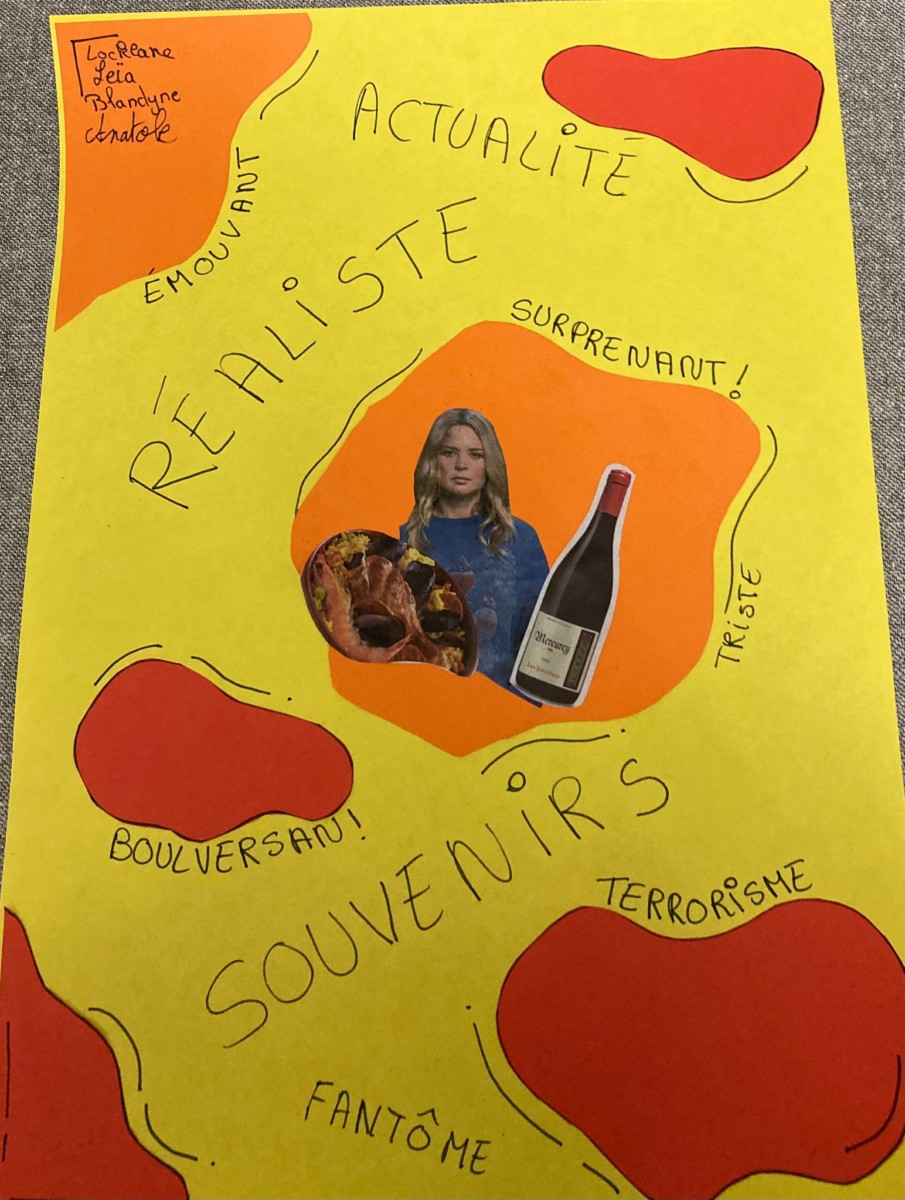 Locklane
Leïa
Blandyne
Anatole
ACTUALITÉ
ÉMOUVANT
RÉALISTE
SURPRENANT !
Mercurey
TRISTE
BOULVERSAN !
SOUVENIRS
TERRORISME
FANTÔME